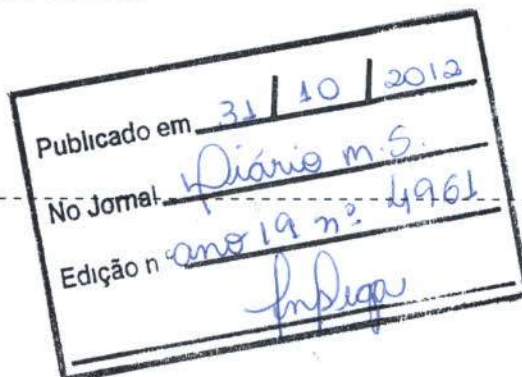 Publicado em 31 / 10 / 2012
No Jornal Diário M.S.
Edição n ano 19 nº 4961